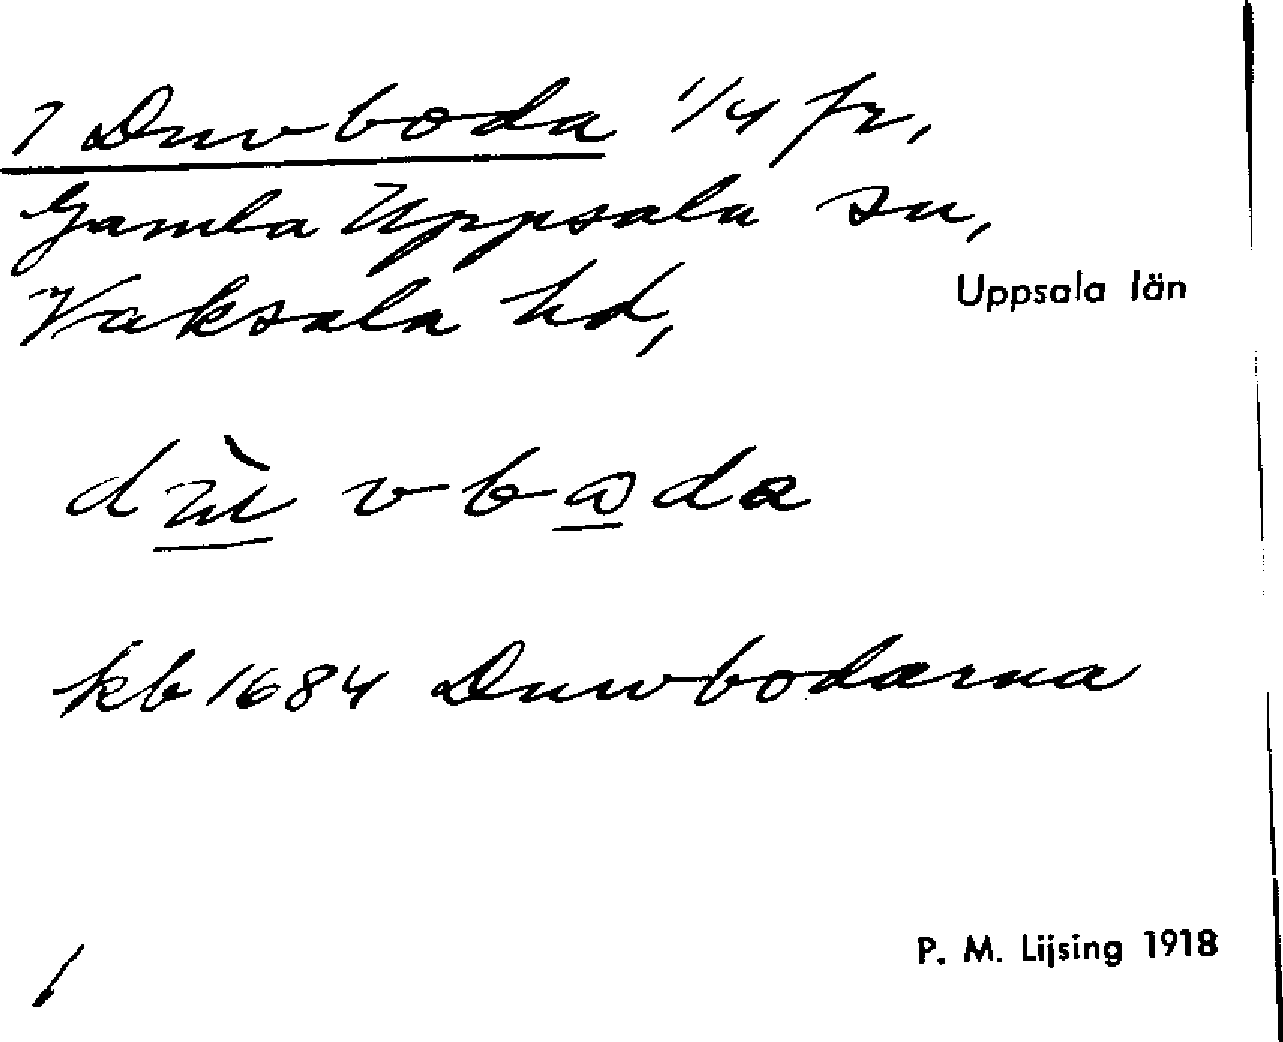 1 Duvboda 1/4 fr,
Gamla Uppsala sn,
Vaksala hd,
Uppsala län
kb 1684 Duwbodarna
P. M. Lijsing 1918